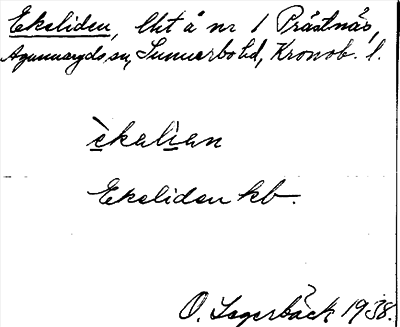 Ekeliden, lht å nr 1 Prästnäs,
Agunnaryds sn, Sunnerbo hd, Kronob. l.
èkalìan
Ekeliden kb.
O. Lagerbäck 1938.